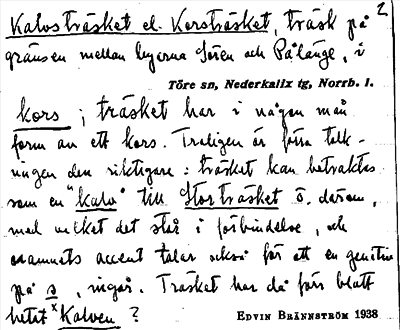 Kalvsträsket el. Korsträsket, träsk på 2
gränsen mellan byarna Sören och Pålänge, i
Töre sn, Nederkalix tg, Norrb. l.
kors; träsket har i någon mån
form av ett kors. Troligen är förra tolk-
ningen den riktigare: träsket kan betraktas
som en "kalv" till Storträsket ö. därom,
med vilket det står i förbindelse, och
namnets accent talar också för att en genitiv
på s, ingår. Träsket har då förr blott
hetat *Kalven?
EDVIN BRÄNNSTRÖM 1938